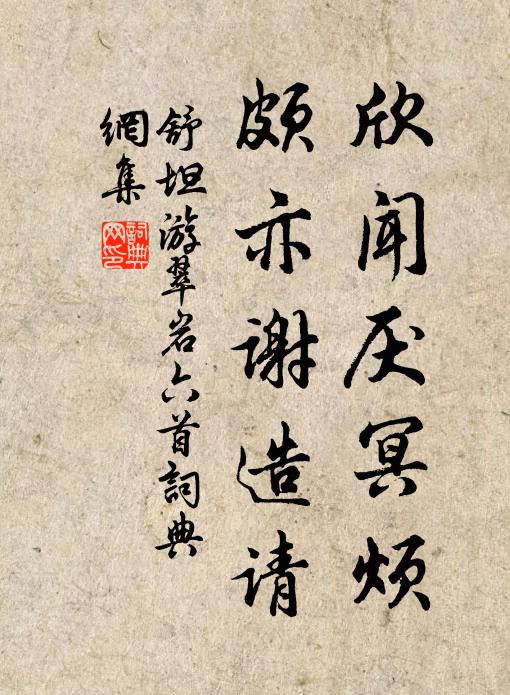 欣闻厌冥烦
颇亦谢造请
舒坦游翠岩六首詞典
網集
詞典
网印